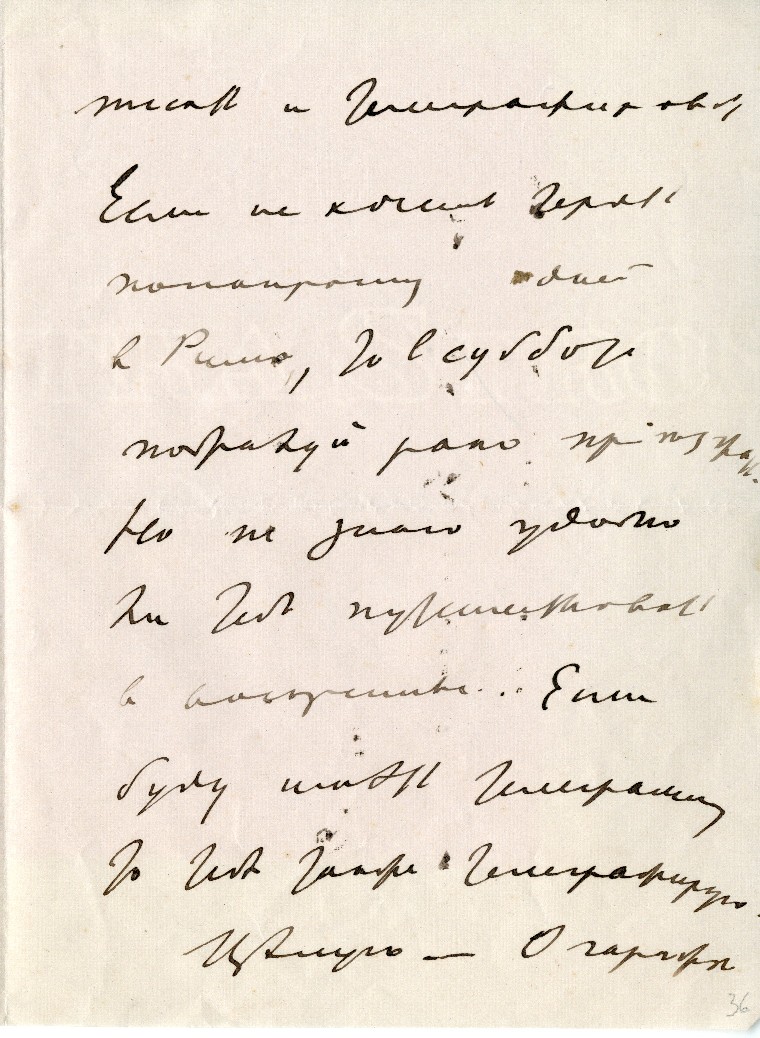 писать и телеграфировать
Если не хочешь терять
понапрасну дней
в Риме, то в субботу
пожалуй рано
Но не знаю удобно
ли тебе путешествовать
в воскресенье... Если
буду иметь телеграмму
то тебе также телеграфирую.
Целую —
36